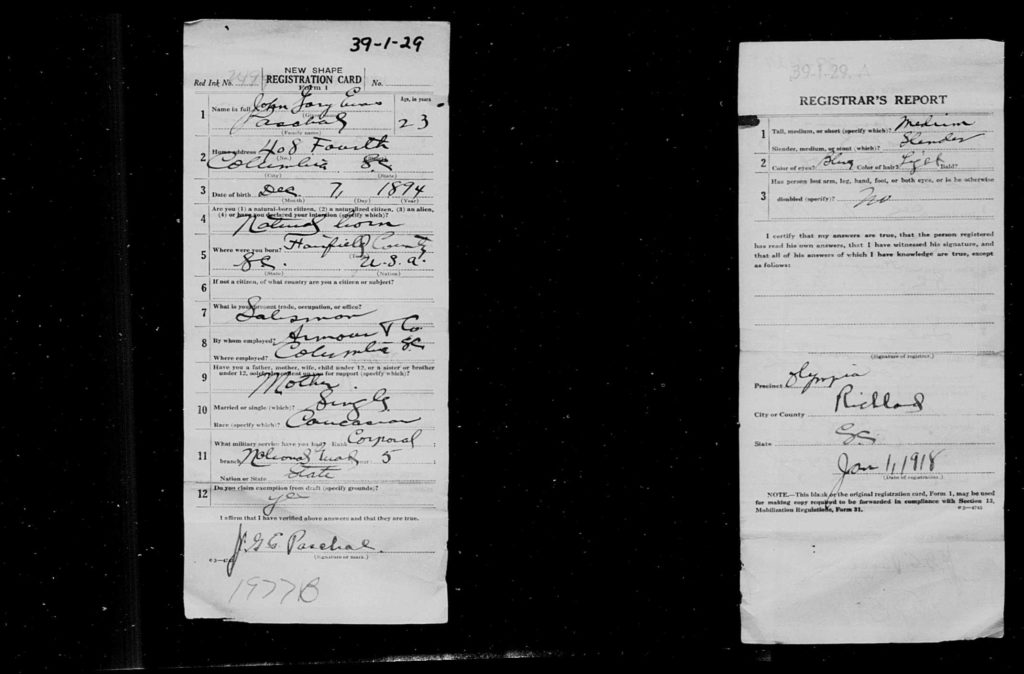 39-1-29
NEW SHAPE
Red Ink No. REGISTRATION CARD No.
Form 1
Name in full John Gary Evans Age, in years
1 Paschal 23
(Family name)
2 Home address 408 Fourth
(No.)
Columbia S.C.
(City) (State)
3 Date of birth Dec 7, 1894
(Month) (Day) (Year)
Are you (1) a natural-born citizen, (2) a naturalized citizen, (3) an alien,
4 (4) or have you declared your intention (specify which)?
Natural born
5 Where were you born? Fairfield County
S.C. U.S.A.
(State) (Nation)
6 If not a citizen, of what country are you a citizen or subject?
7 What is your present trade, occupation, or office?
Salesman
8 By whom employed? Armour & Co
Where employed? Columbia S.C.
Have you a father, mother, wife, child under 12, or a sister or brother
9 under 12, solely dependent on you for support (specify which)?
Mother.
10 Married or single (which)? Single
Race (specify which)? Caucasian
What military service have you had? Rank Corporal
11 branch National Guard 5
Nation or State State
12 Do you claim exemption from draft (specify grounds)?
yes
I affirm that I have verified above answers and that they are true.
J. G. E. Paschal.
(Signature or mark.)
1977B
39-1-29. A
REGISTRAR'S REPORT
1 Tall, medium, or short (specify which)? Medium
Slender, medium, or stout (which)? Slender
2 Color of eyes? Blue Color of hair? Light Bald?
Has person lost arm, leg, hand, foot, or both eyes, or is he otherwise
3 disabled (specify)? No
I certify that my answers are true, that the person registered
has read his own answers, that I have witnessed his signature, and
that all of his answers of which I have knowledge are true, except
as follows:
(Signature of registrar.)
Precinct Olympia
City or County Richland
State S.C.
Jan 1, 1918
(Date of registration.)
NOTE.—This blank or the original registration card, Form 1, may be used
for making copy required to be forwarded in compliance with Section 13,
Mobilization Regulations, Form 31.